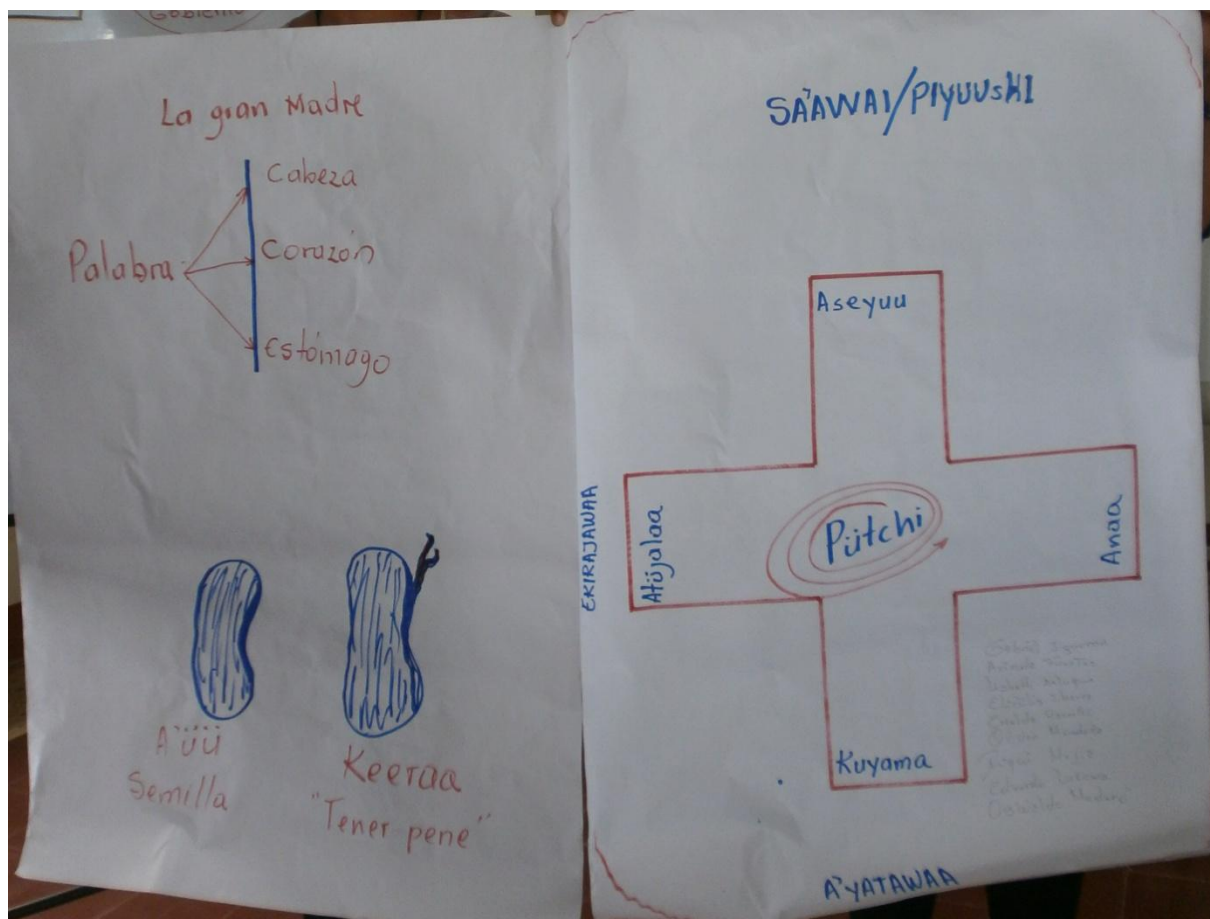 Gobierno
La gran Madre
Cabeza
Palabra
Corazón
Estómago
A'üü
Semilla
Keeraa
"Tener pene"
SA'AWAI/PIYUUSHI
Aseyuu
EKIRAJAWAA
Atüjalaa
Pütchi
Anaa
Kuyama
A'YATAWAA